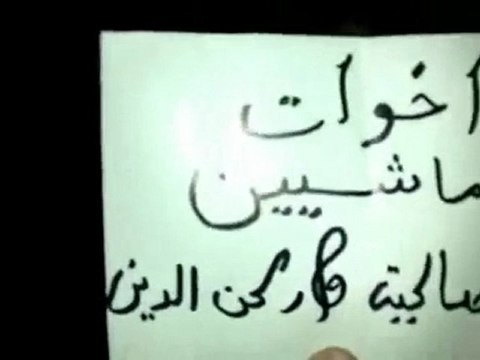 اخوات
ماشيين
صالحية & ركن الدين